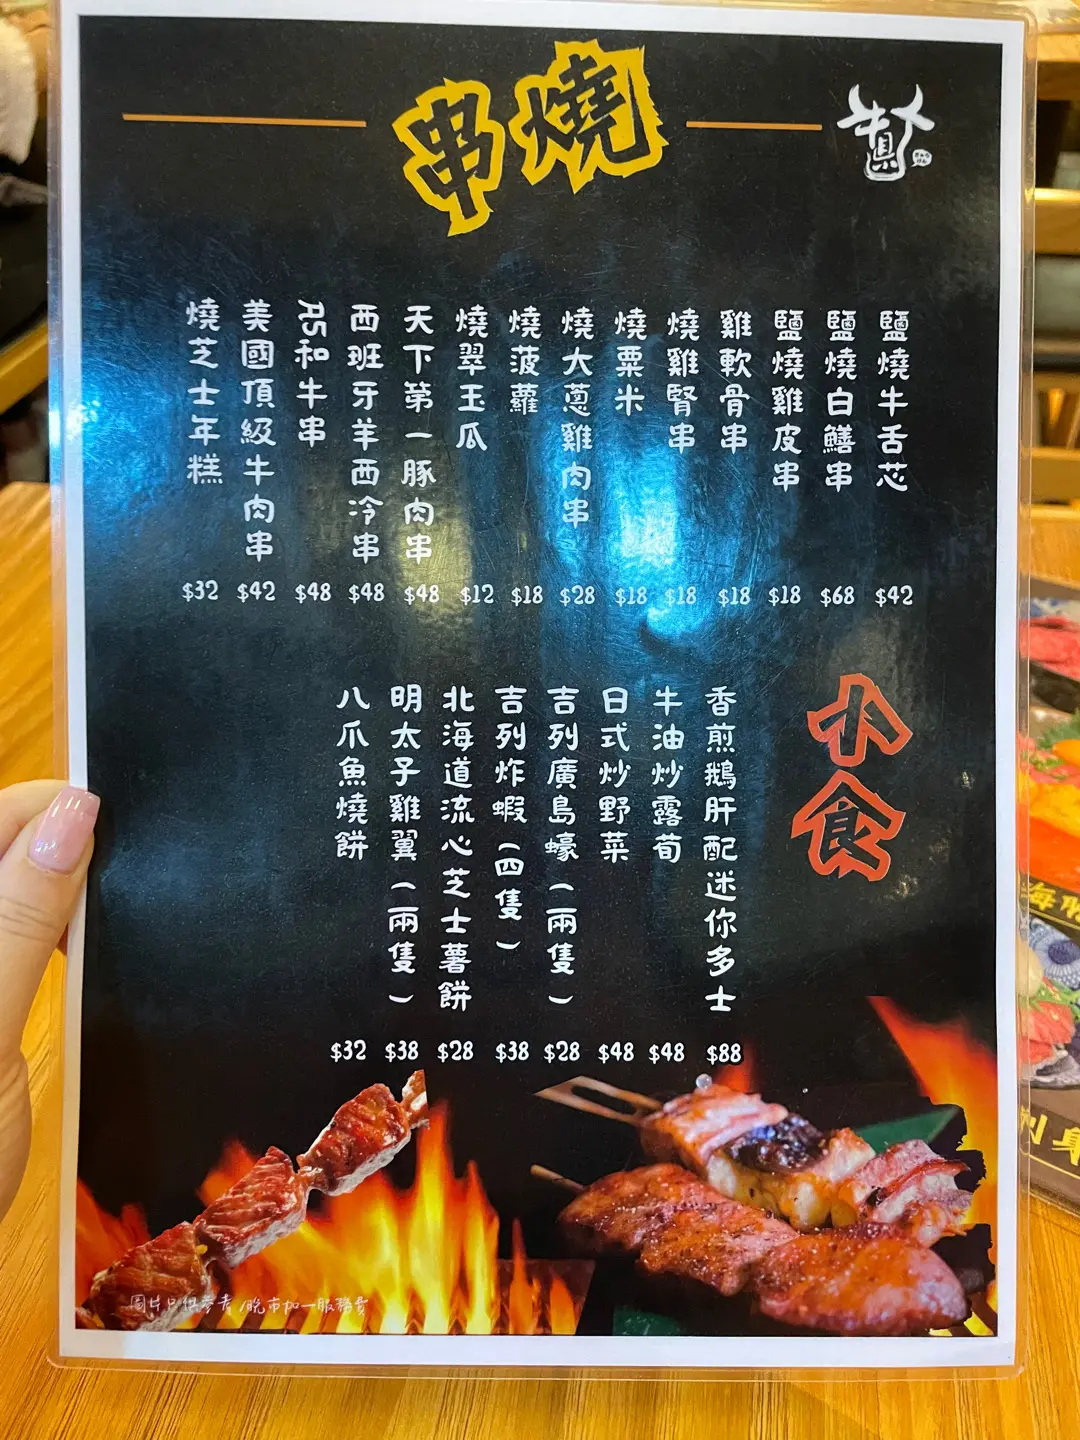 串燒
鹽燒牛舌芯 $42
鹽燒白鱔串 $68
鹽燒雞皮串 $18
雞軟骨串 $18
燒雞腎串 $18
燒粟米 $18
燒大蔥雞肉串 $28
燒菠蘿 $18
燒翠玉瓜 $12
天下第一豚肉串 $48
西班牙羊西冷串 $48
A5和牛串 $48
美國頂級牛肉串 $42
燒芝士年糕 $32
小食
香煎鵝肝配迷你多士 $88
牛油炒露荀 $48
日式炒野菜 $48
吉列廣島蠔(兩隻) $28
吉列炸蝦(四隻) $38
北海道流心芝士薯餅 $28
明太子雞翼(兩隻) $38
八爪魚燒餅 $32
圖片只供參考/晚市加一服務費